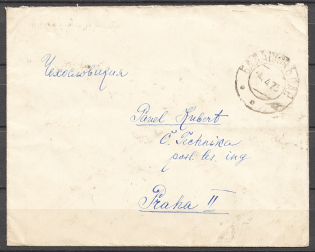 Чехословакия
Pavel Hubert
Č. Technika
post. les. ing
Praha II